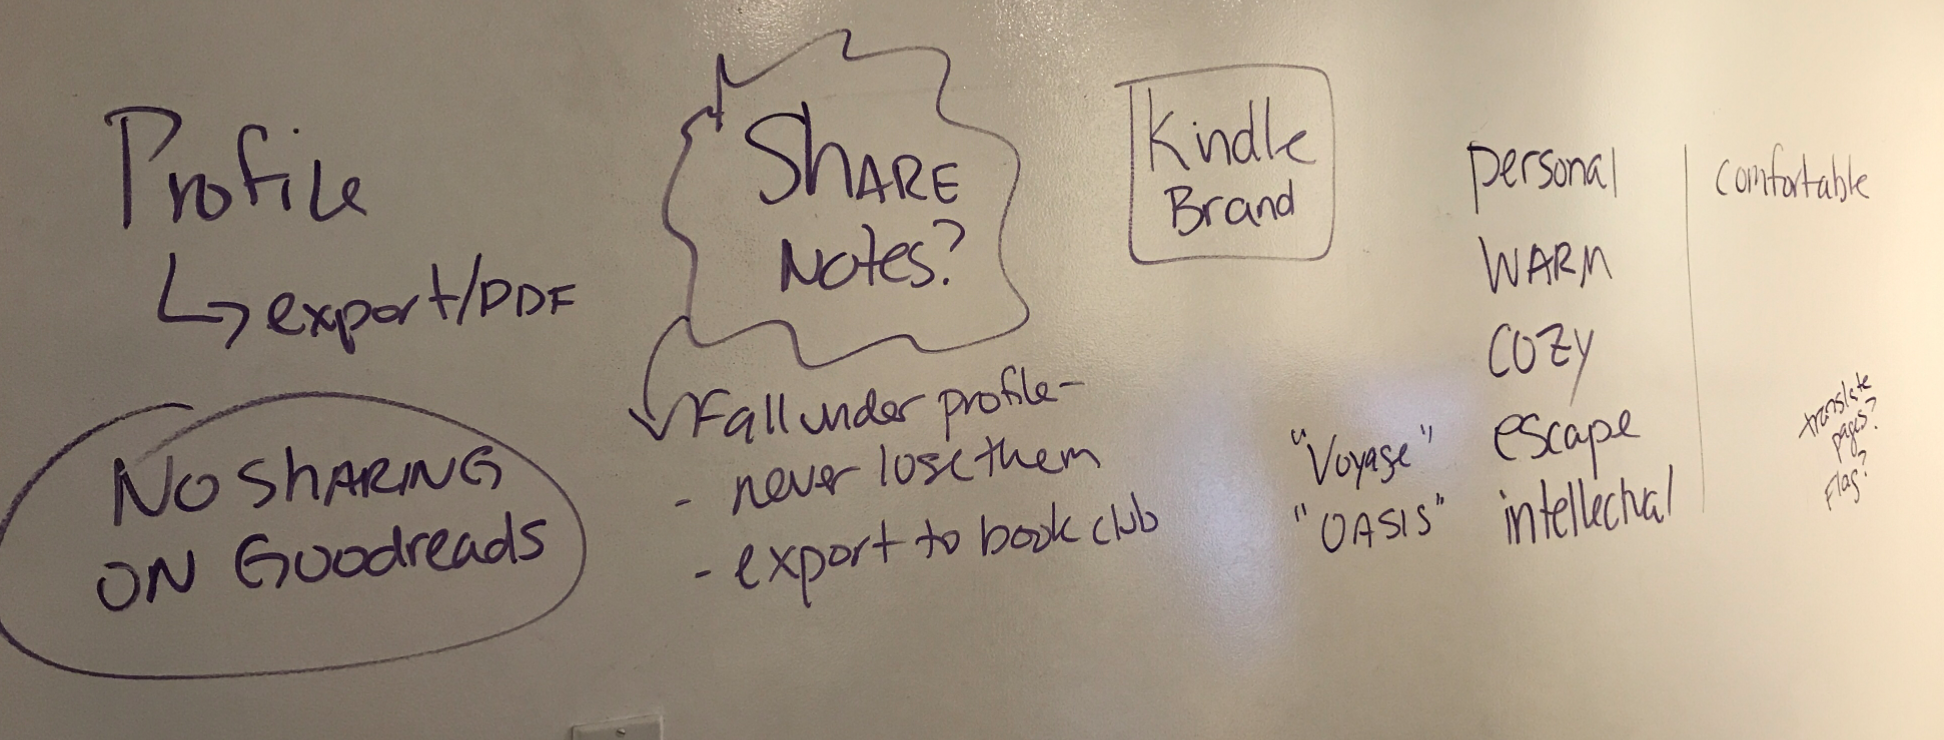 Profile
export/PDF
NO SHARING
ON Goodreads
SHARE
Notes?
Fall under profile-
- never lose them
- export to book club
Kindle
Brand
"Voyage"
"OASIS"
personal
WARM
COZY
escape
intellectual
comfortable
translate
pages?
Flag?